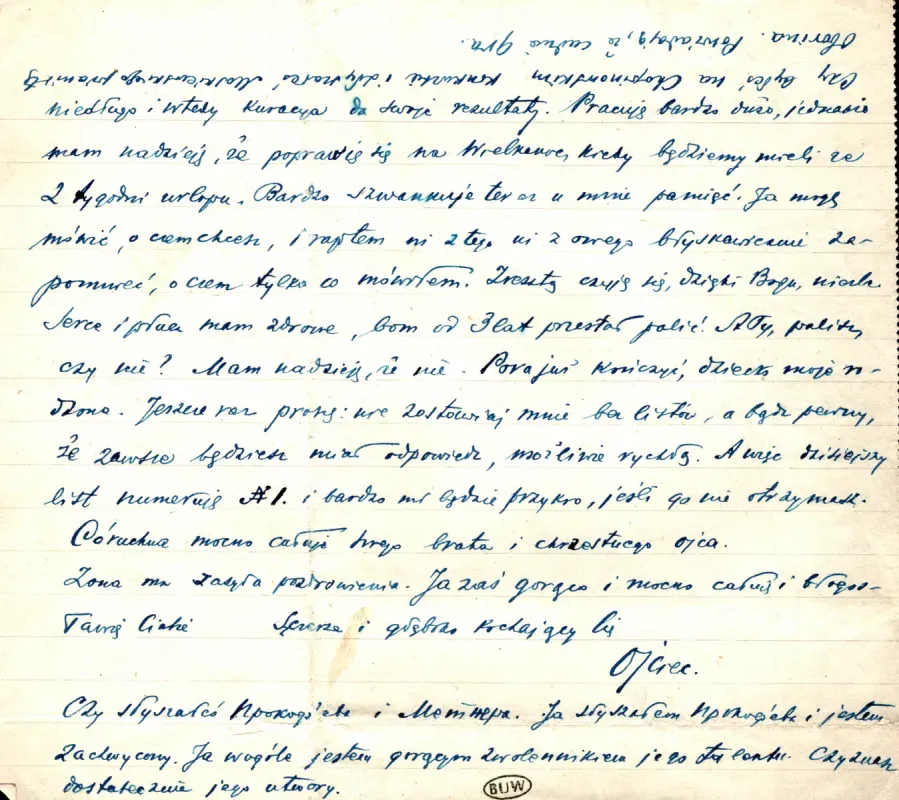 Czy byłeś na Chopinowskim konkursie i słyszałeś Moskiewskiego pianistę
Oborina. Powiadają, że cudnie gra.
niedługo i wtedy kuracya da swoje rezultaty. Pracuję bardzo dużo, jednakże
mam nadzieję, że poprawię się na Wielkanoc, kiedy będziemy mieli ze
2 tygodni urlopu. Bardzo szwankuje teraz u mnie pamięć. Ja mogę
mówić, o czem chcesz, i raptem ni z tego ni z owego błyskawicznie za-
pomnieć, o czem tylko co mówiłem. Zresztą czuję się, dzięki Bogu, nieźle.
Serce i płuca mam zdrowe, bom od 3 lat przestał palić. A Ty, palisz,
czy nie? Mam nadzieję, że nie. Pora już kończyć, dziecko moje ro-
dzone. Jeszcze raz proszę: nie zostawiaj mnie bez listów, a bądź pewny,
że zawsze będziesz miał odpowiedź, możliwie rychłą. A więc dzisiejszy
list numeruję № 1. i bardzo mi będzie przykro, jeśli go nie otrzymasz.
Córuchna mocno całuje swego brata i chrzestnego ojca.
Żona ma zasyła pozdrowienia. Ja zaś gorąco i mocno całuję i błogos-
ławię Ciebie Szczerze i głęboko kochający Cię
Ojciec.
Czy słyszałeś Прокофьева i Метнера. Ja słyszałem Прокофьева i jestem
zachwycony. Ja wogóle jestem gorącym zwolennikiem jego talentu. Czy znasz
dostatecznie jego utwory.
BUW